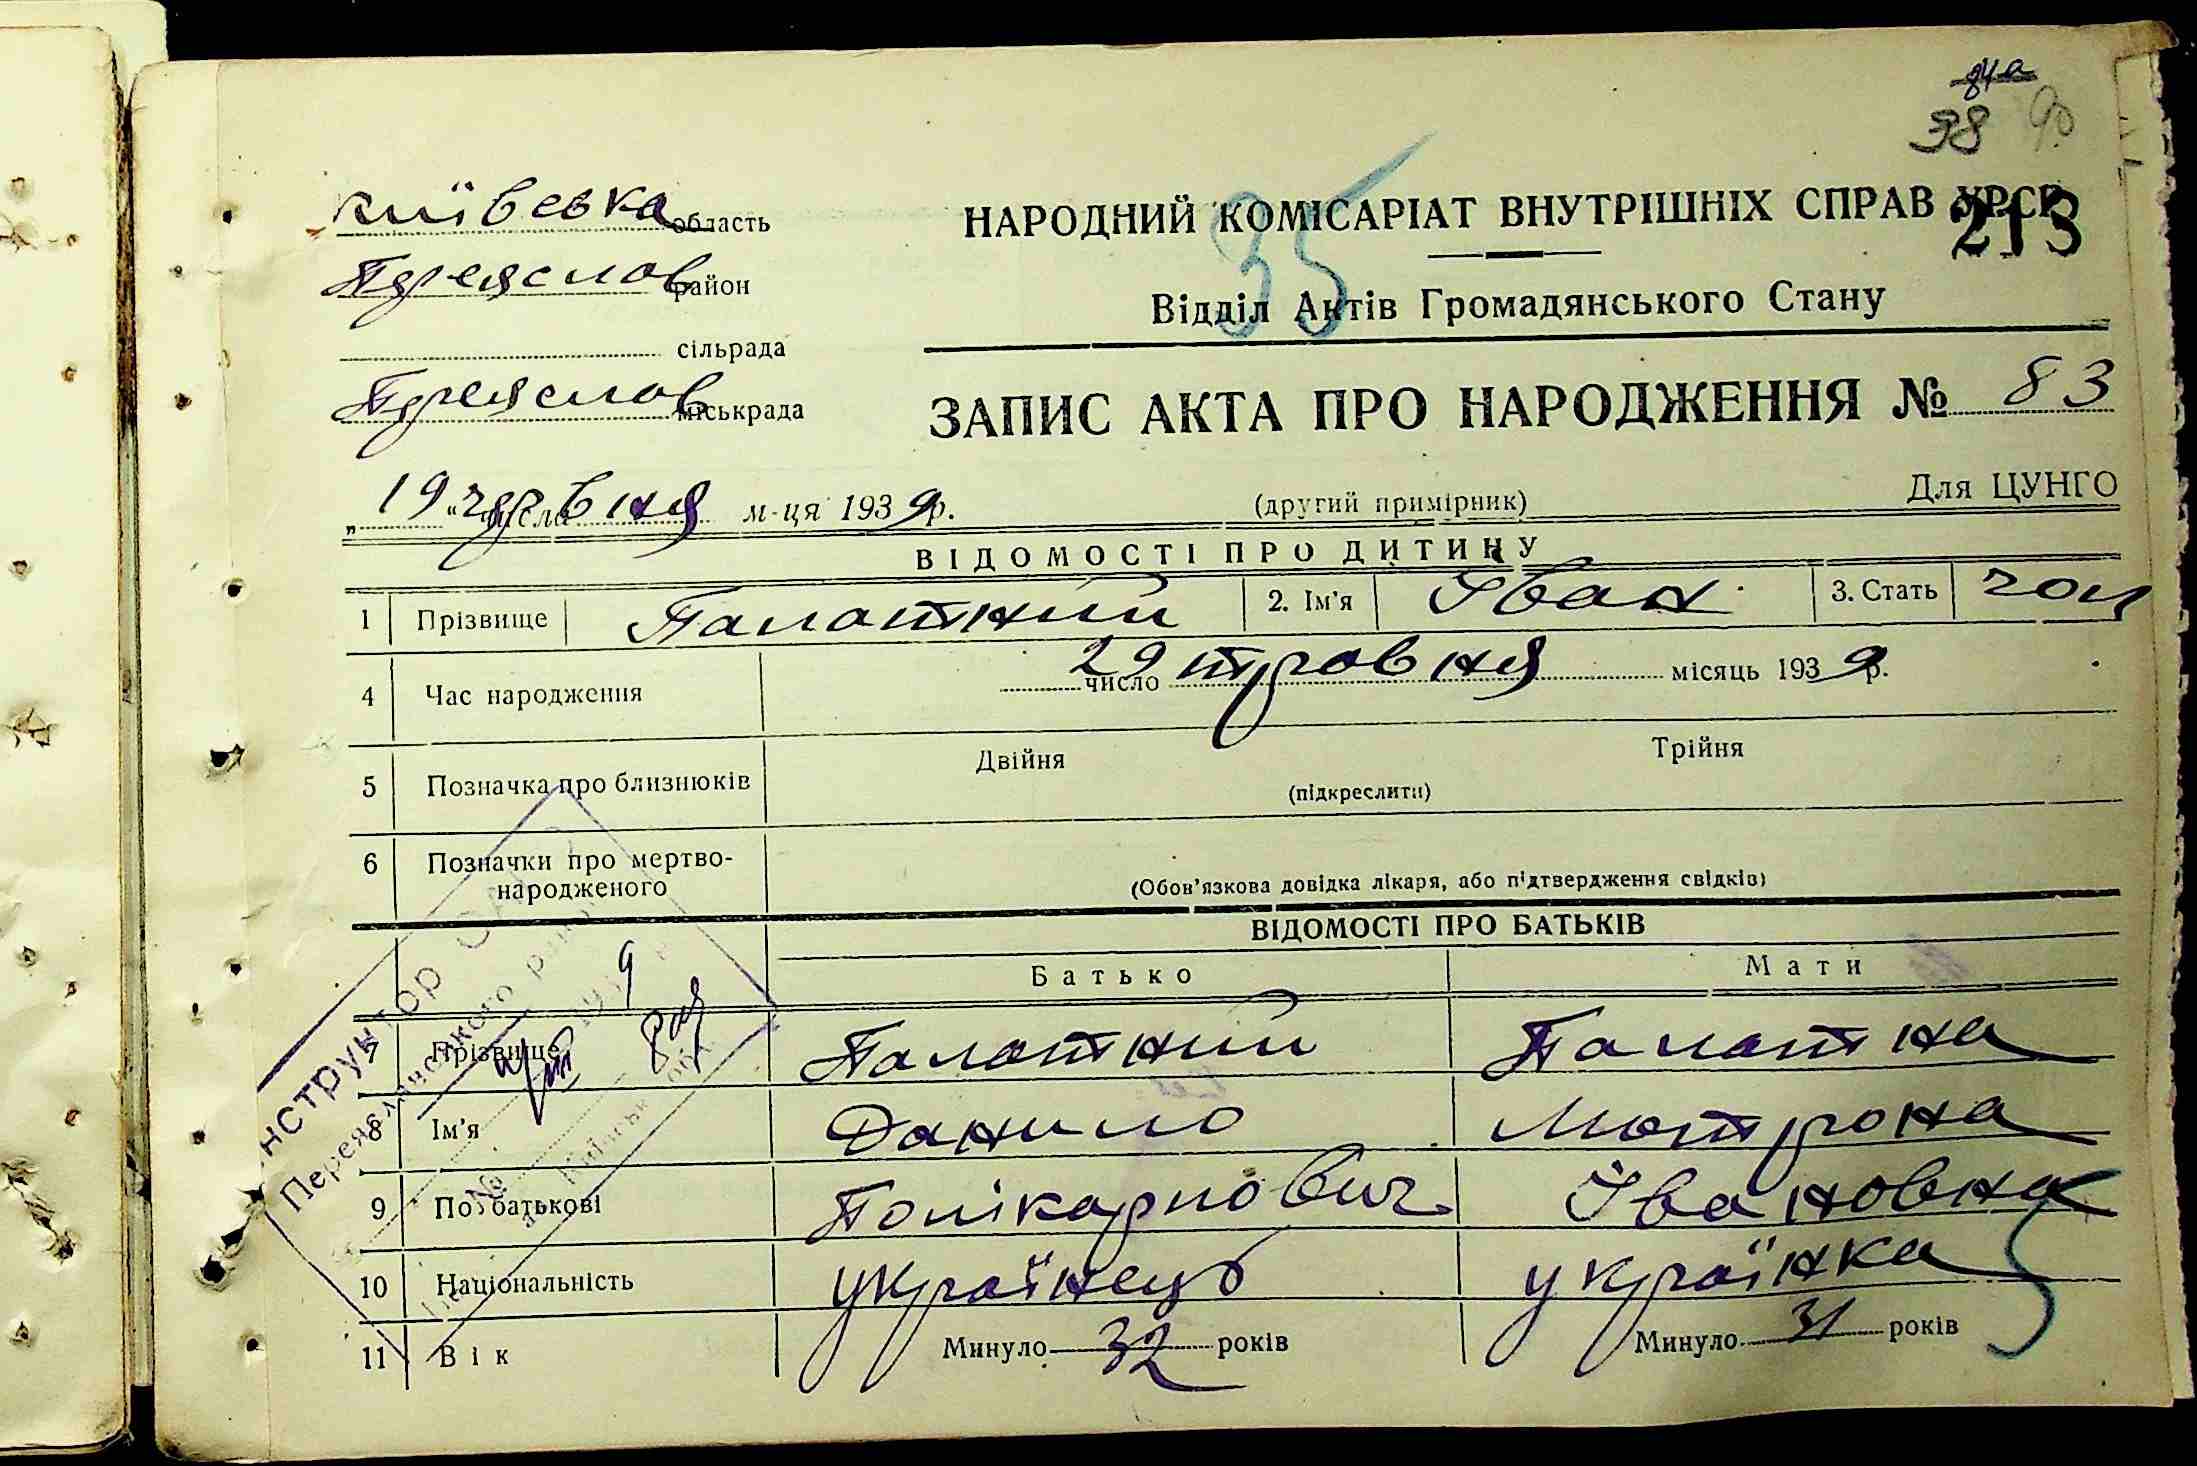 38 90
київська область
НАРОДНИЙ КОМІСАРІАТ ВНУТРІШНІХ СПРАВ УРСР
213
35
Переяслов район
Відділ Актів Громадянського Стану
сільрада
Переяслов міськрада
ЗАПИС АКТА ПРО НАРОДЖЕННЯ № 83
„19“ числа червня м-ця 1939 р.
(другий примірник)
Для ЦУНГО
ВІДОМОСТІ ПРО ДИТИНУ
1 Прізвище Палатний 2. Ім'я Іван 3. Стать чол
4 Час народження 29 число травня місяць 1939 р.
5 Позначка про близнюків Двійня Трійня
(підкреслити)
6 Позначки про мертво-
народженого
(Обов'язкова довідка лікаря, або підтвердження свідків)
ВІДОМОСТІ ПРО БАТЬКІВ
Батько Мати
7 Прізвище Палатний Палатна
8 Ім'я Данило Мотрона
9 По батькові Полікарпович Івановна
10 Національність українець українка
11 Вік Минуло 32 років Минуло 31 років